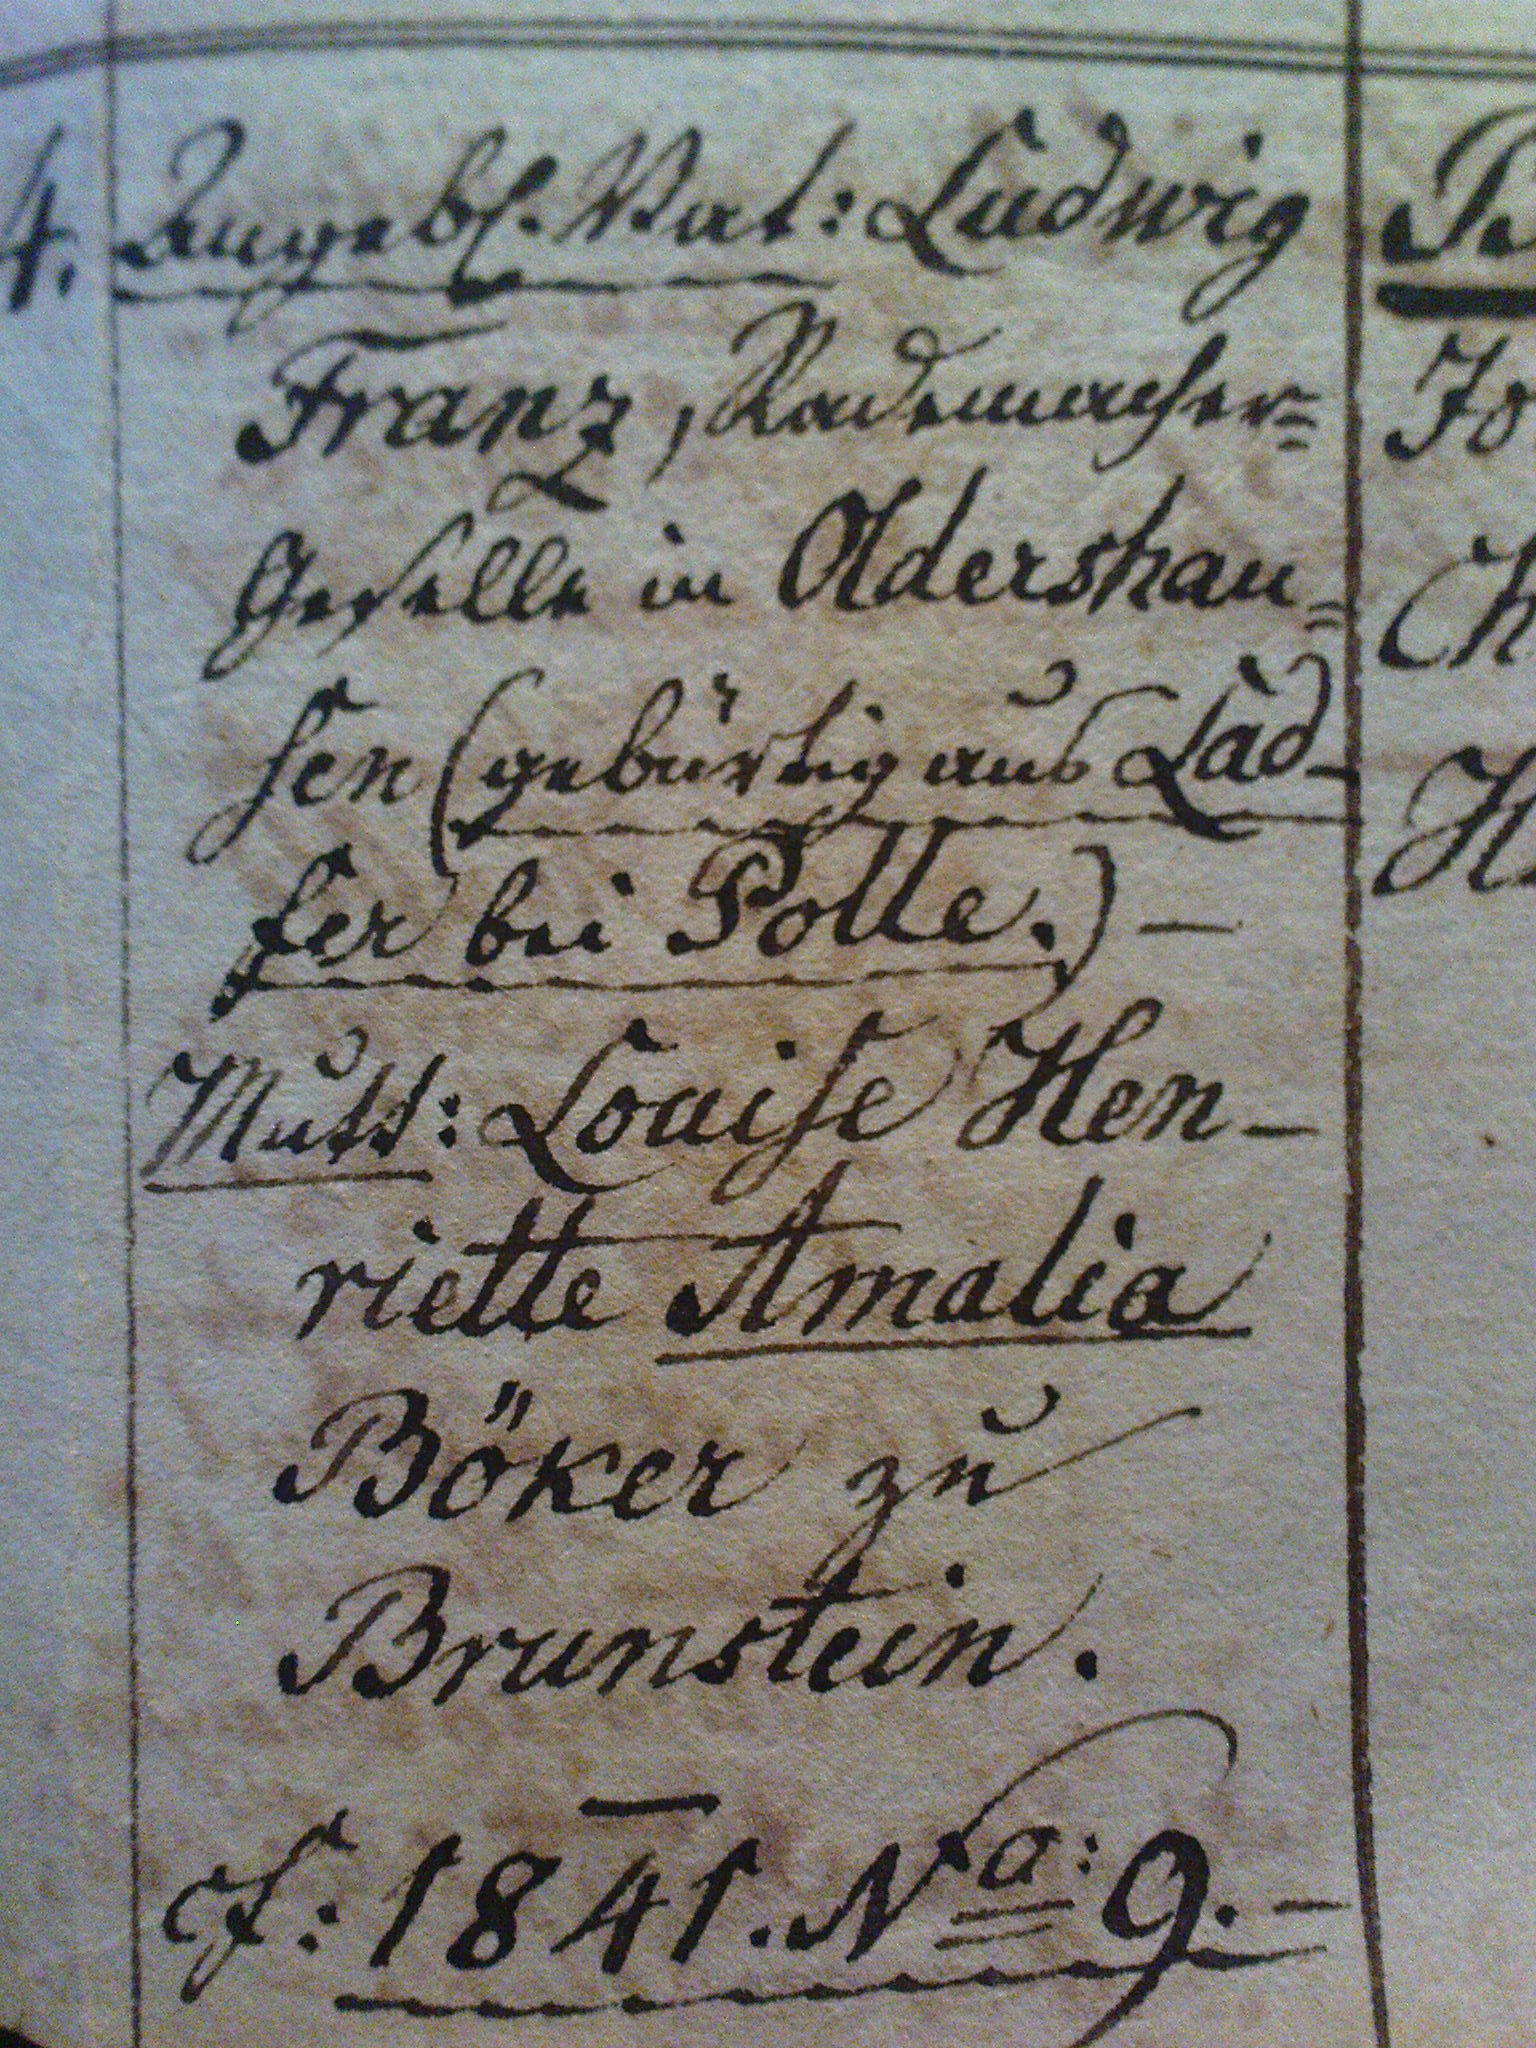 4. Angebl. Vat: Ludwig
Franz, Rademacher=
Geselle in Oldershau=
sen (gebürtig aus Lad-
fer bei Polle.) —
Mutt: Louise Hen-
riette Amalia
Böker zu
Brunstein.
—
cf: 1841. No: 9. —
Jo
Ch
He